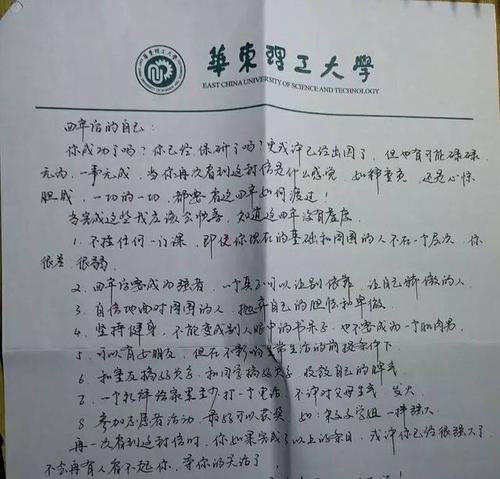 華東理工大學
EAST CHINA UNIVERSITY OF SCIENCE AND TECHNOLOGY
四年后的自己：
你成功了吗？你已经保研了吗？或许已经出国了，但也有可能碌碌
无为，一事无成，当你再次看到这封信是什么感觉，如释重负，还是心惊
胆战，一切的一切，都要看这四年如何渡过！
当完成这些我应该会快乐，知道这四年没有虚度
1. 不挂任何一门课，即使你现在的基础和周围的人不在一个层次，你
很差，很弱。
2. 四年后要成为强者，一个真正可以让别人依靠，让自己骄傲的人
3. 自信地面对周围的人，抛弃自己的胆怯和卑微
4. 坚持健身，不能变成别人眼中的书呆子，也不要成为一个肌肉男
5. 可以有女朋友，但在不影响正常生活的前提条件下
6. 和室友搞好关系，和同学搞好关系，收敛自己的脾气
7. 一个礼拜给家里至少打一个电话，不许对父母生气，发火
8. 参加志愿者活动，最好可以获奖，如：
再一次看到这封信时，你如果完成了以上的条目，或许你已经很强大了
不会再有人看不起你，等你的关洁了